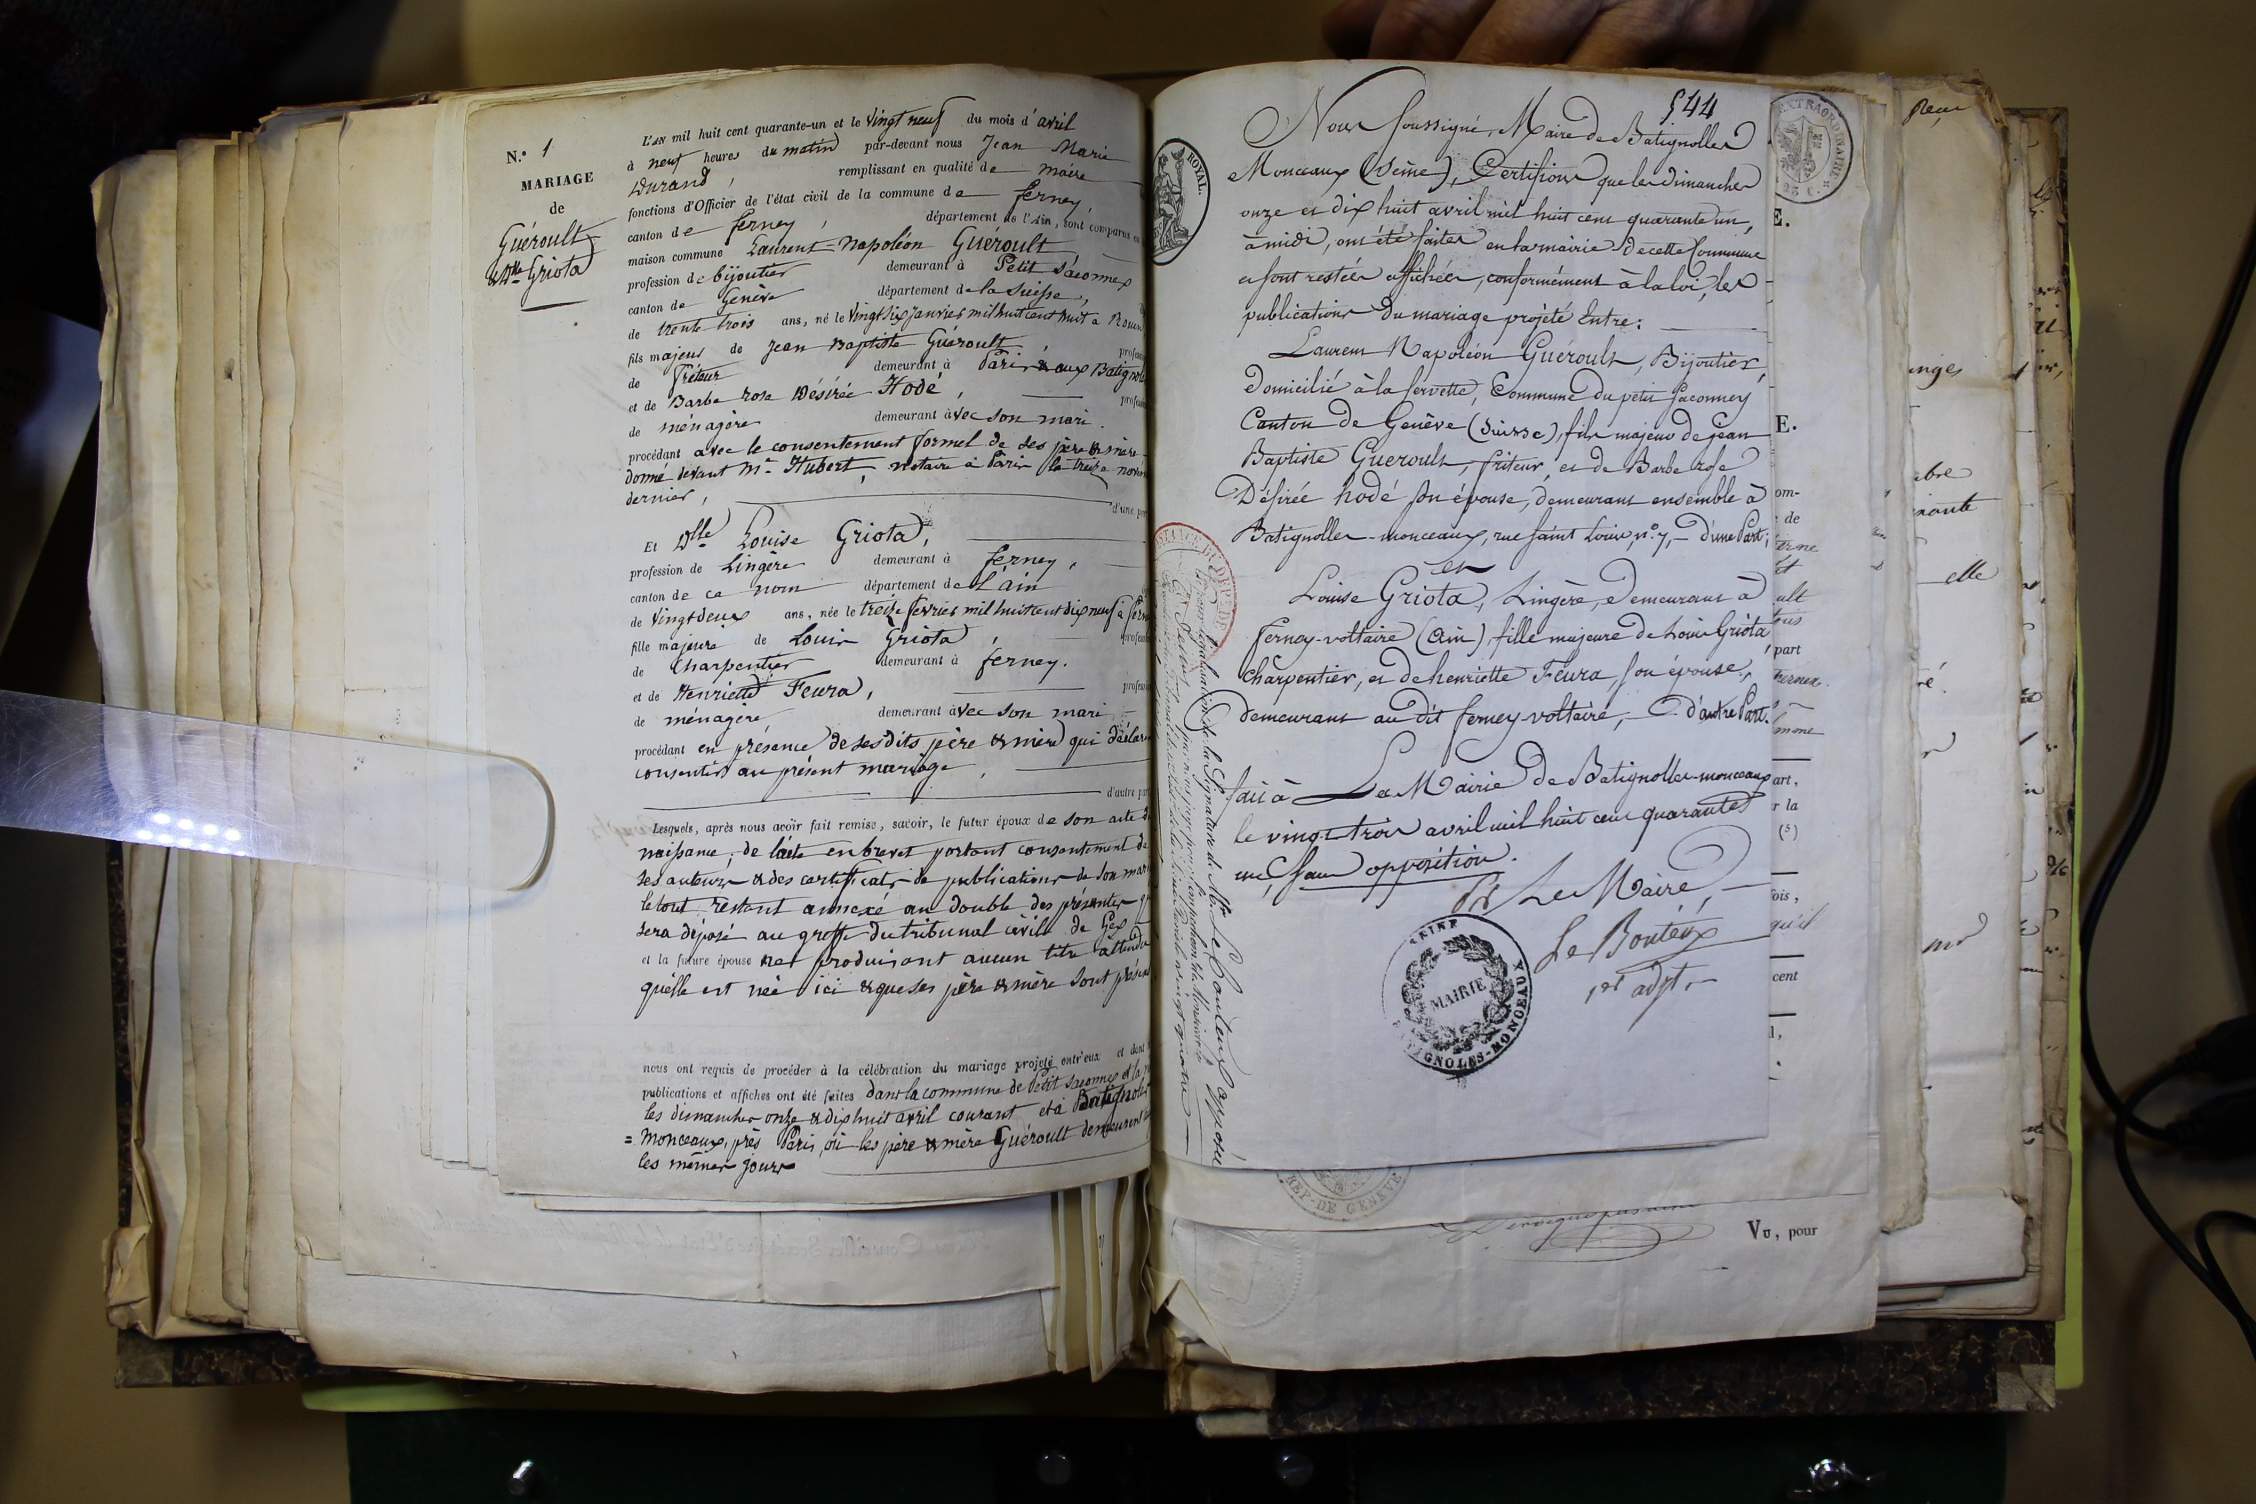 N.° 1
MARIAGE
de
Guéroult
& Dlle Griota
L'AN mil huit cent quarante-un et le vingt neuf du mois d'avril
à neuf heures du matin par-devant nous Jean Marie
Durand, remplissant en qualité de maire
fonctions d'Officier de l'état civil de la commune de ferney,
canton de ferney, département de l'Ain, sont comparus en
maison commune Laurent-Napoléon Guéroult
profession de bijoutier demeurant à Petit Saconnex
canton de Genève département de la Suisse,
de trente trois ans, né le vingt six janvier mil huit cent huit à Rouen
fils majeur de Jean Baptiste Guéroult
de friteur demeurant à Paris & aux Batignoles
et de Barbe rose Désirée Hodé,
de ménagère demeurant avec son mari.
procédant avec le consentement formel de ses père & mère
donné devant Me Hubert, notaire à Paris le treize
dernier,
d'une part
Et Dlle Louise Griota,
profession de Lingère demeurant à ferney,
canton de ce nom département de L'ain
de vingt deux ans, née le treize fevrier mil huit cent dix neuf à
fille majeure de Louis Griota,
de Charpentier demeurant à ferney.
et de Henriette Feura,
de ménagère demeurant avec son mari
procédant en présence de ses dits père & mère qui
consentir au présent mariage,
d'autre part
Lesquels, après nous avoir fait remise, savoir, le futur époux de son acte de
naissance, de l'acte en brevet portant consentement de
ses auteurs & des certificats de publications de son
le tout restant annexé au double des présentes
sera déposé au greffe du tribunal civil de Gex
et la future épouse ne produisant aucun titre attendu
quelle est née ici & que ses père & mère sont
nous ont requis de procéder à la célébration du mariage projeté entr'eux et dont
publications et affiches ont été faites dans la commune de Petit Saconnex et la
les dimanches onze & dix huit avril courant et à Batignoles
= monceaux, près Paris, où les père & mère Guéroult demeurent
les mêmes jours
544
Nous soussigné, Maire de Batignolles
Monceaux (Seine), Certifions que les dimanches
onze et dix huit avril mil huit cent quarante un,
à midi, ont été faites en la mairie de cette Commune
et sont restées affichées, conformément à la loi, les
publications du mariage projeté Entre:
Laurent Napoléon Guéroult, Bijoutier,
domicilié à la servette, Commune du petit Saconney
Canton de Genève (Suisse), fils majeur de Jean
Baptiste Gueroult, friteur, et de Barbe rose
Désirée hodé son épouse, demeurant ensemble à
Batignolles-monceaux, rue saint Louis, n° 7, - d'une Part;
et
Louise Griota, Lingère, demeurant à
ferney-voltaire (Ain), fille majeure de Louis Griota
Charpentier, et de henriette Feura, son épouse,
demeurant au dit ferney-voltaire, - d'autre Part.
fait à La Mairie de Batignolles-monceaux
le vingt trois avril mil huit cent quarante
un, sans opposition.
Pr Le Maire,
Le Bouteux
1er adjt
MAIRIE
BATIGNOLES-MONCEAUX
SEINE
ROYAL.
EXTRAORDINAIRE
REP. DE GENEVE
VU, pour